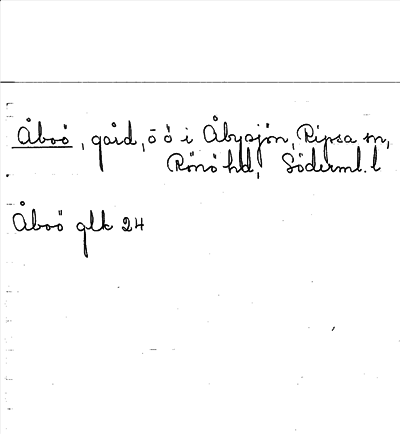 Åboö, gård, ö ö i Åbysjön, Ripsa sn,
Rönö hd, Söderml. l
Åboö glk 24